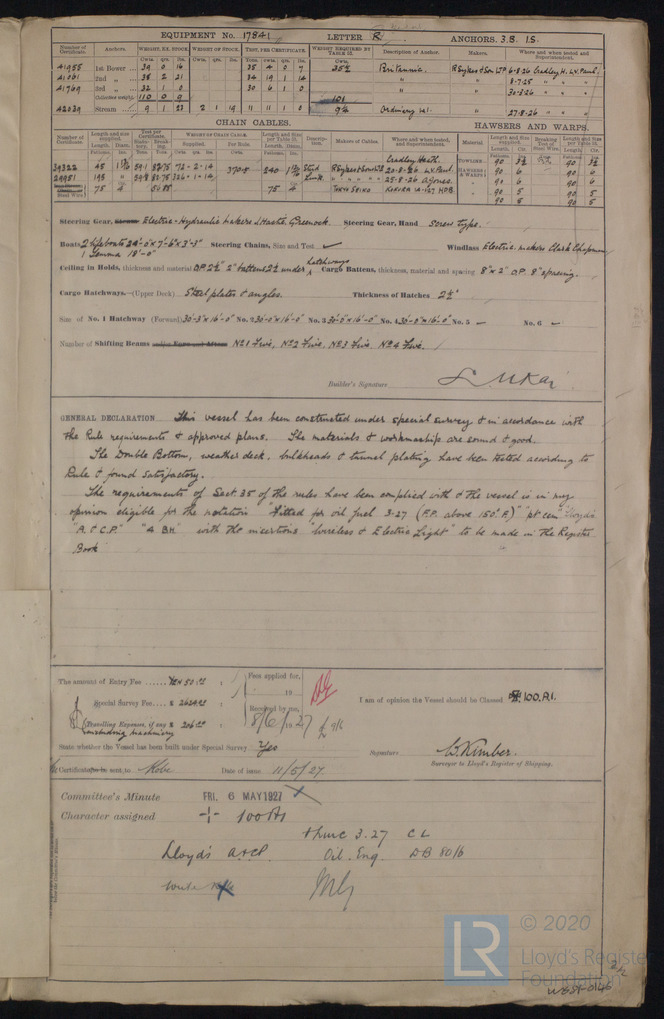 EQUIPMENT No. 17841 LETTER R ANCHORS. 3.B. 1.S.
Number of Certificate. Anchors. WEIGHT, EX. STOCK. WEIGHT OF STOCK. TEST, PER CERTIFICATE. WEIGHT REQUIRED BY TABLE 22. Description of Anchor. Makers. Where and when tested and Superintendent.
41955 1st Bower 39 0 16 35 4 0 7 Britannic. R.Sykes & Son Ltd 6-8-26 Cradley H. W. Paul.
41061 2nd 38 2 21 34 19 1 14 8-7-25
41769 3rd 32 1 0 30 6 1 0 30-8-26
Collective weight 110 0 9 101
42039 Stream 9 1 23 2 1 19 11 11 1 0 9½ Ordinary 27-8-26
CHAIN CABLES. HAWSERS AND WARPS.
Number of Certificate. Length and size supplied. Test per Certificate. WEIGHT OF CHAIN CABLE. Length and Size per Table 22. Description. Makers of Cables. Where and when tested, and Superintendent. Material Length and Size supplied. Breaking Test of Steel Wire. Length and Size per Table 22.
Supplied. Per Rule.
Cradley Heath.
39322 45 72-2-14 370.5 240 Stud R Sykes & Son Ltd 20-8-26 W. Paul. TOWLINE 90 90
29951 195 326-1-14 Link 25-8-26 HAWSERS & WARPS 90 6 90 6
90 6 90 6
75 4 75 4 TOKYO SEIKO KOKURA 90 5 90 5
90 5 90 5
Steering Gear, Steam Electric-Hydraulic makers J. Hastie, Greenock. Steering Gear, Hand Screw type.
Boats 2 lifeboats 24'-0" x 7'-6" x 3'-3" Steering Chains, Size and Test ✓ Windlass Electric. makers Clark Chapman
1 Semma 18'-0"
Ceiling in Holds, thickness and material O.P. 2½" 2" battens 2½ under hatchways Cargo Battens, thickness, material and spacing 8" x 2" O.P. 8" spacing.
Cargo Hatchways.—(Upper Deck) Steel plates & angles. Thickness of Hatches 2½"
Size of No. 1 Hatchway (Forward) 30'-3" x 16'-0" No. 2 30'-0" x 16'-0" No. 3 30'-0" x 16'-0" No. 4 30'-0" x 16'-0" No. 5 — No. 6 —
Number of Shifting Beams No 1 Five, No 2 Five, No 3 Five, No 4 Five.
Builder's Signature
GENERAL DECLARATION This vessel has been constructed under special survey & in accordance with
the Rule requirements & approved plans. The materials & workmanship are sound & good.
The Double Bottom, weather deck, bulkheads & tunnel plating have been tested according to
Rule & found satisfactory.
The requirements of Sect. 35 of the rules have been complied with & the vessel is in my
opinion eligible for the notation "Fitted for oil fuel 3.27 (F.P. above 150° F.)" "pt cem" "Lloyd's
"A. & C.P." "4 BH" with the insertions "Wireless & Electric Light" to be made in the Register
Book
The amount of Entry Fee ...... Yen 50.00 : Fees applied for,
19
Special Survey Fee .... Received by me,
(Travelling Expenses, if any 206.00 : 8/6/1927
including machinery
I am of opinion the Vessel should be Classed 100.A1.
State whether the Vessel has been built under Special Survey Yes Signature W. Kimber.
Surveyor to Lloyd's Register of Shipping.
Certificate sent to Kobe Date of issue 11/5/27.
Committee's Minute FRI. 6 MAY 1927
Character assigned 100A1
+ LMC 3.27 CL
Lloyd's A&CP Oil Eng DB 80/6
© 2020
LR Lloyd's Register
Foundation
2/2
W681-0146